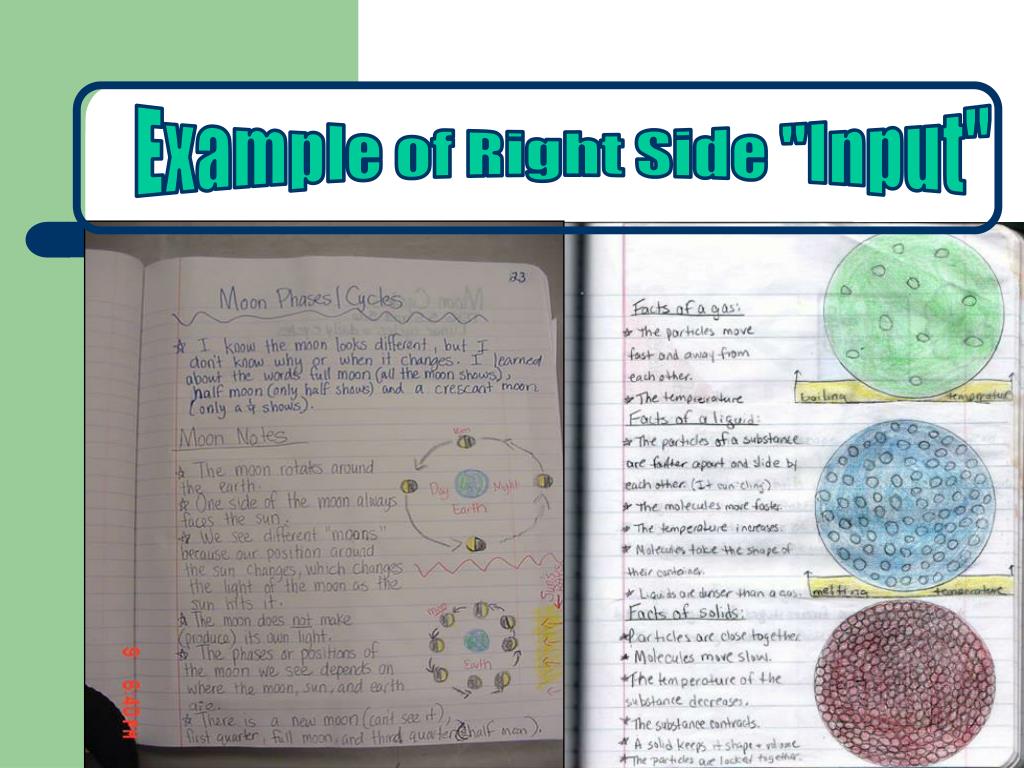 Example of Right Side "Input"
23
Moon Phases/Cycles
☆ I know the moon looks different, but I
don't know why or when it changes. I learned
about the words full moon (all the moon shows),
half moon (only half shows) and a crescant moon
(only a shows).
Moon Notes
☆ The moon rotates around
the earth.
☆ One side of the moon always
faces the sun.
☆ We see different "moons"
because our position around
the sun changes, which changes
the light of the moon as the
sun hits it.
☆ The moon does not make
(produce) its own light.
☆ The phases or positions of
the moon we see depends on
where the moon, sun, and earth
are.
☆ There is a new moon (can't see it),
first quarter, full moon, and third quarter (half moon).
Day
Night
Earth
moon
Earth
9 6:40PM
Facts of a gas:
☆ The particles move
fast and away from
each other.
☆ The temprerature
boiling temperatur
Facts of a liquid:
☆ The particles of a substance
are farther apart and slide by
each other. (It cling)
☆ The molecules move faster.
☆ The temperature increases.
☆ Molecules take the shape of
their container.
☆ Liquids are denser than a gas.
melting temperature
Facts of solids:
☆ Particles are close together.
☆ Molecules move slow.
☆ The temperature of the
substance decreases.
☆ The substance contracts.
☆ A solid keeps it shape + volume
☆ The particles are locked together.